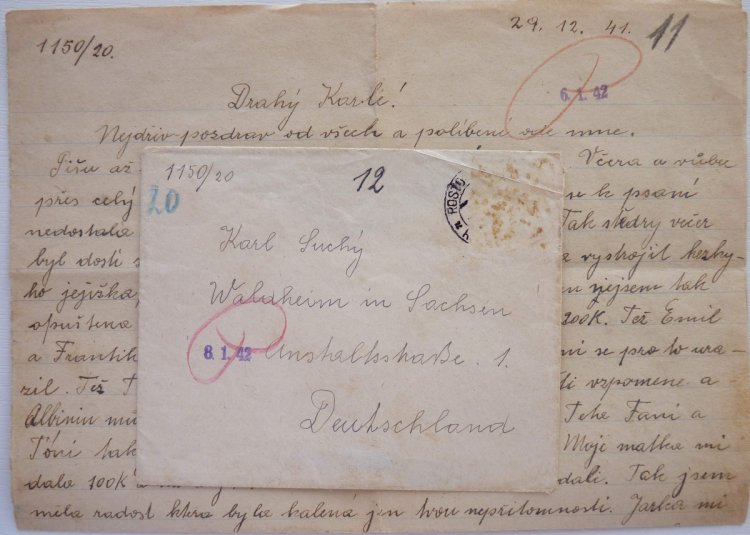 1150/20.
29. 12. 41. 11
Drahý Karle!
6.1.42
Nejdriv pozdrav od všech a políbení ode mne.
Píšu až
Včera a vůbec
přes celý
se k psaní
nedostala
Tak štedry večer
byl dosti
a vystrojil hezky-
ho jejižka,
nejsem tak
opuštena
200K. Tež Emil
a Frantik
se pro to ura-
zil. Tež T
vzpomene a
Albinin
Tete Fani a
Tóni tak
Moje matka mi
dala 100K
dali. Tak jsem
měla radost ktera byla kalená jen tvou nepřitomnosti. Jarka mi
1150/20
12
20
Karl Suchý
Waldheim in Sachsen
8.1.42
Anstaltsstraße. 1.
Deutschland